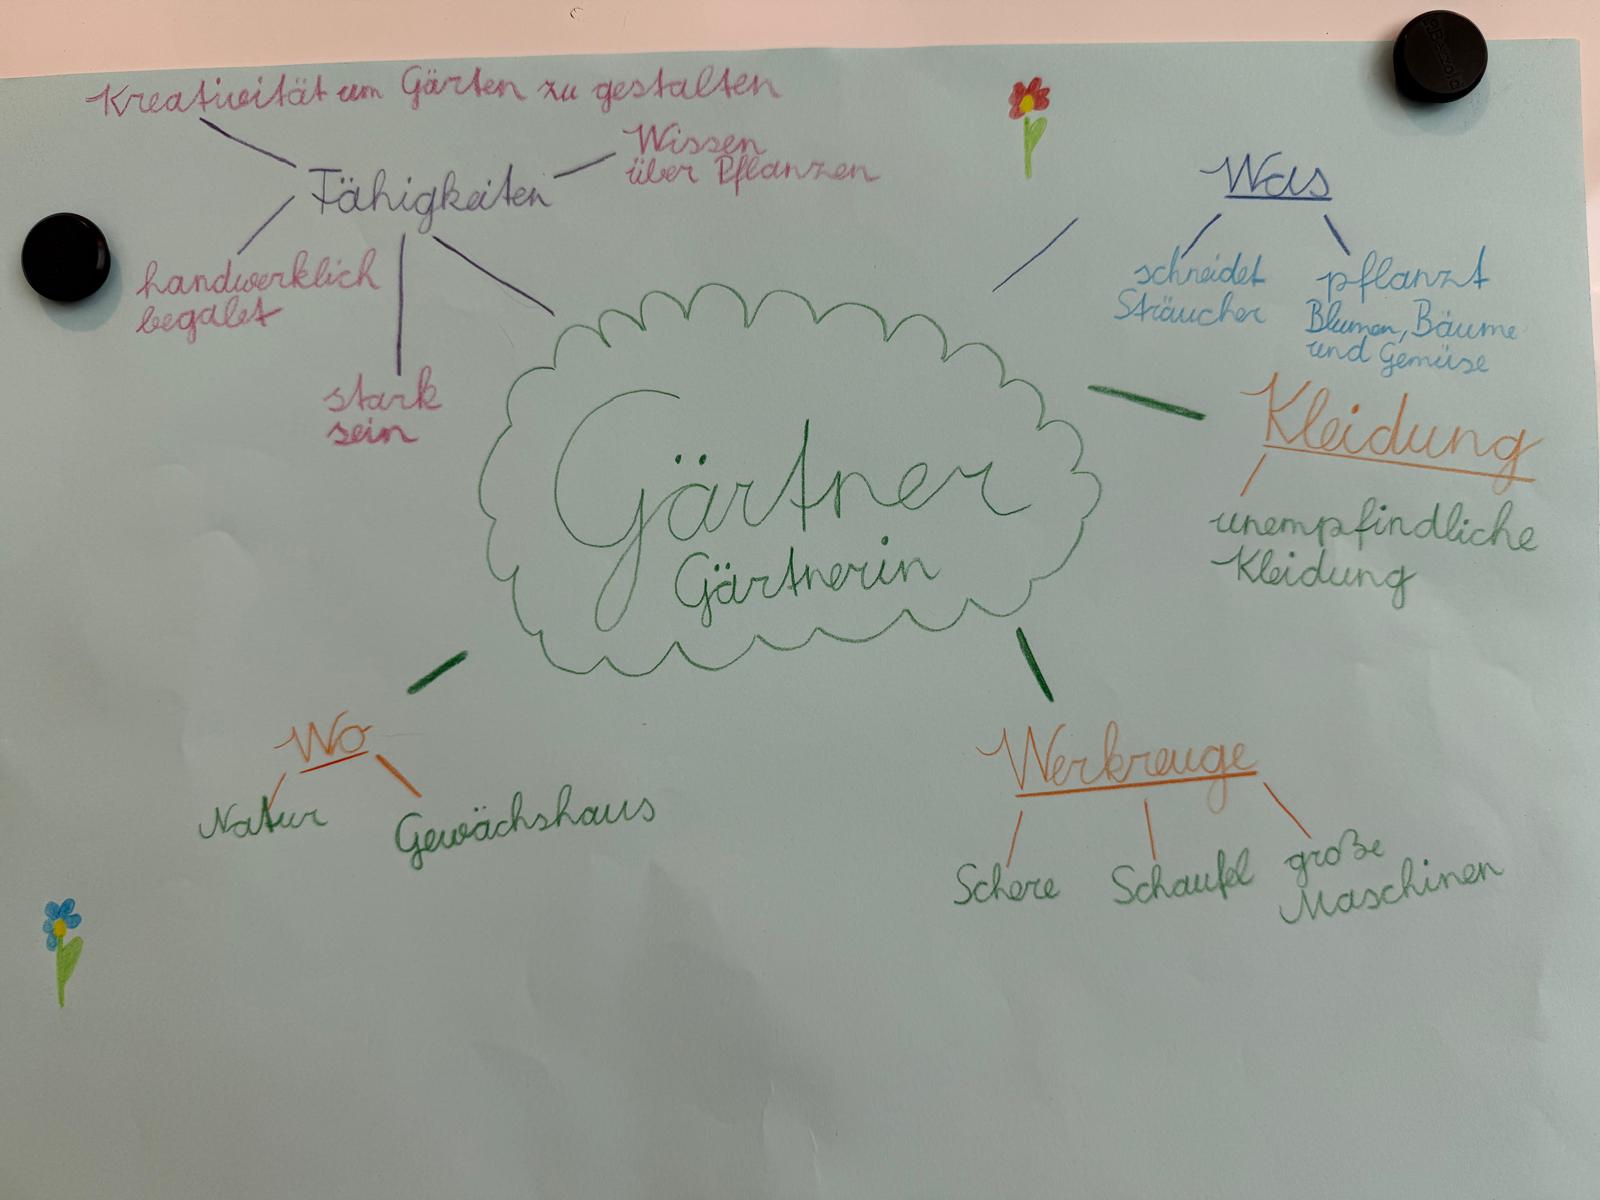 Kreativität um Gärten zu gestalten
Fähigkeiten
Wissen
über Pflanzen
handwerklich
begabt
stark
sein
Was
schneidet
Sträucher
pflanzt
Blumen, Bäume
und Gemüse
Kleidung
unempfindliche
Kleidung
Gärtner
Gärtnerin
Wo
Natur
Gewächshaus
Werkzeuge
Schere
Schaufel
große
Maschinen